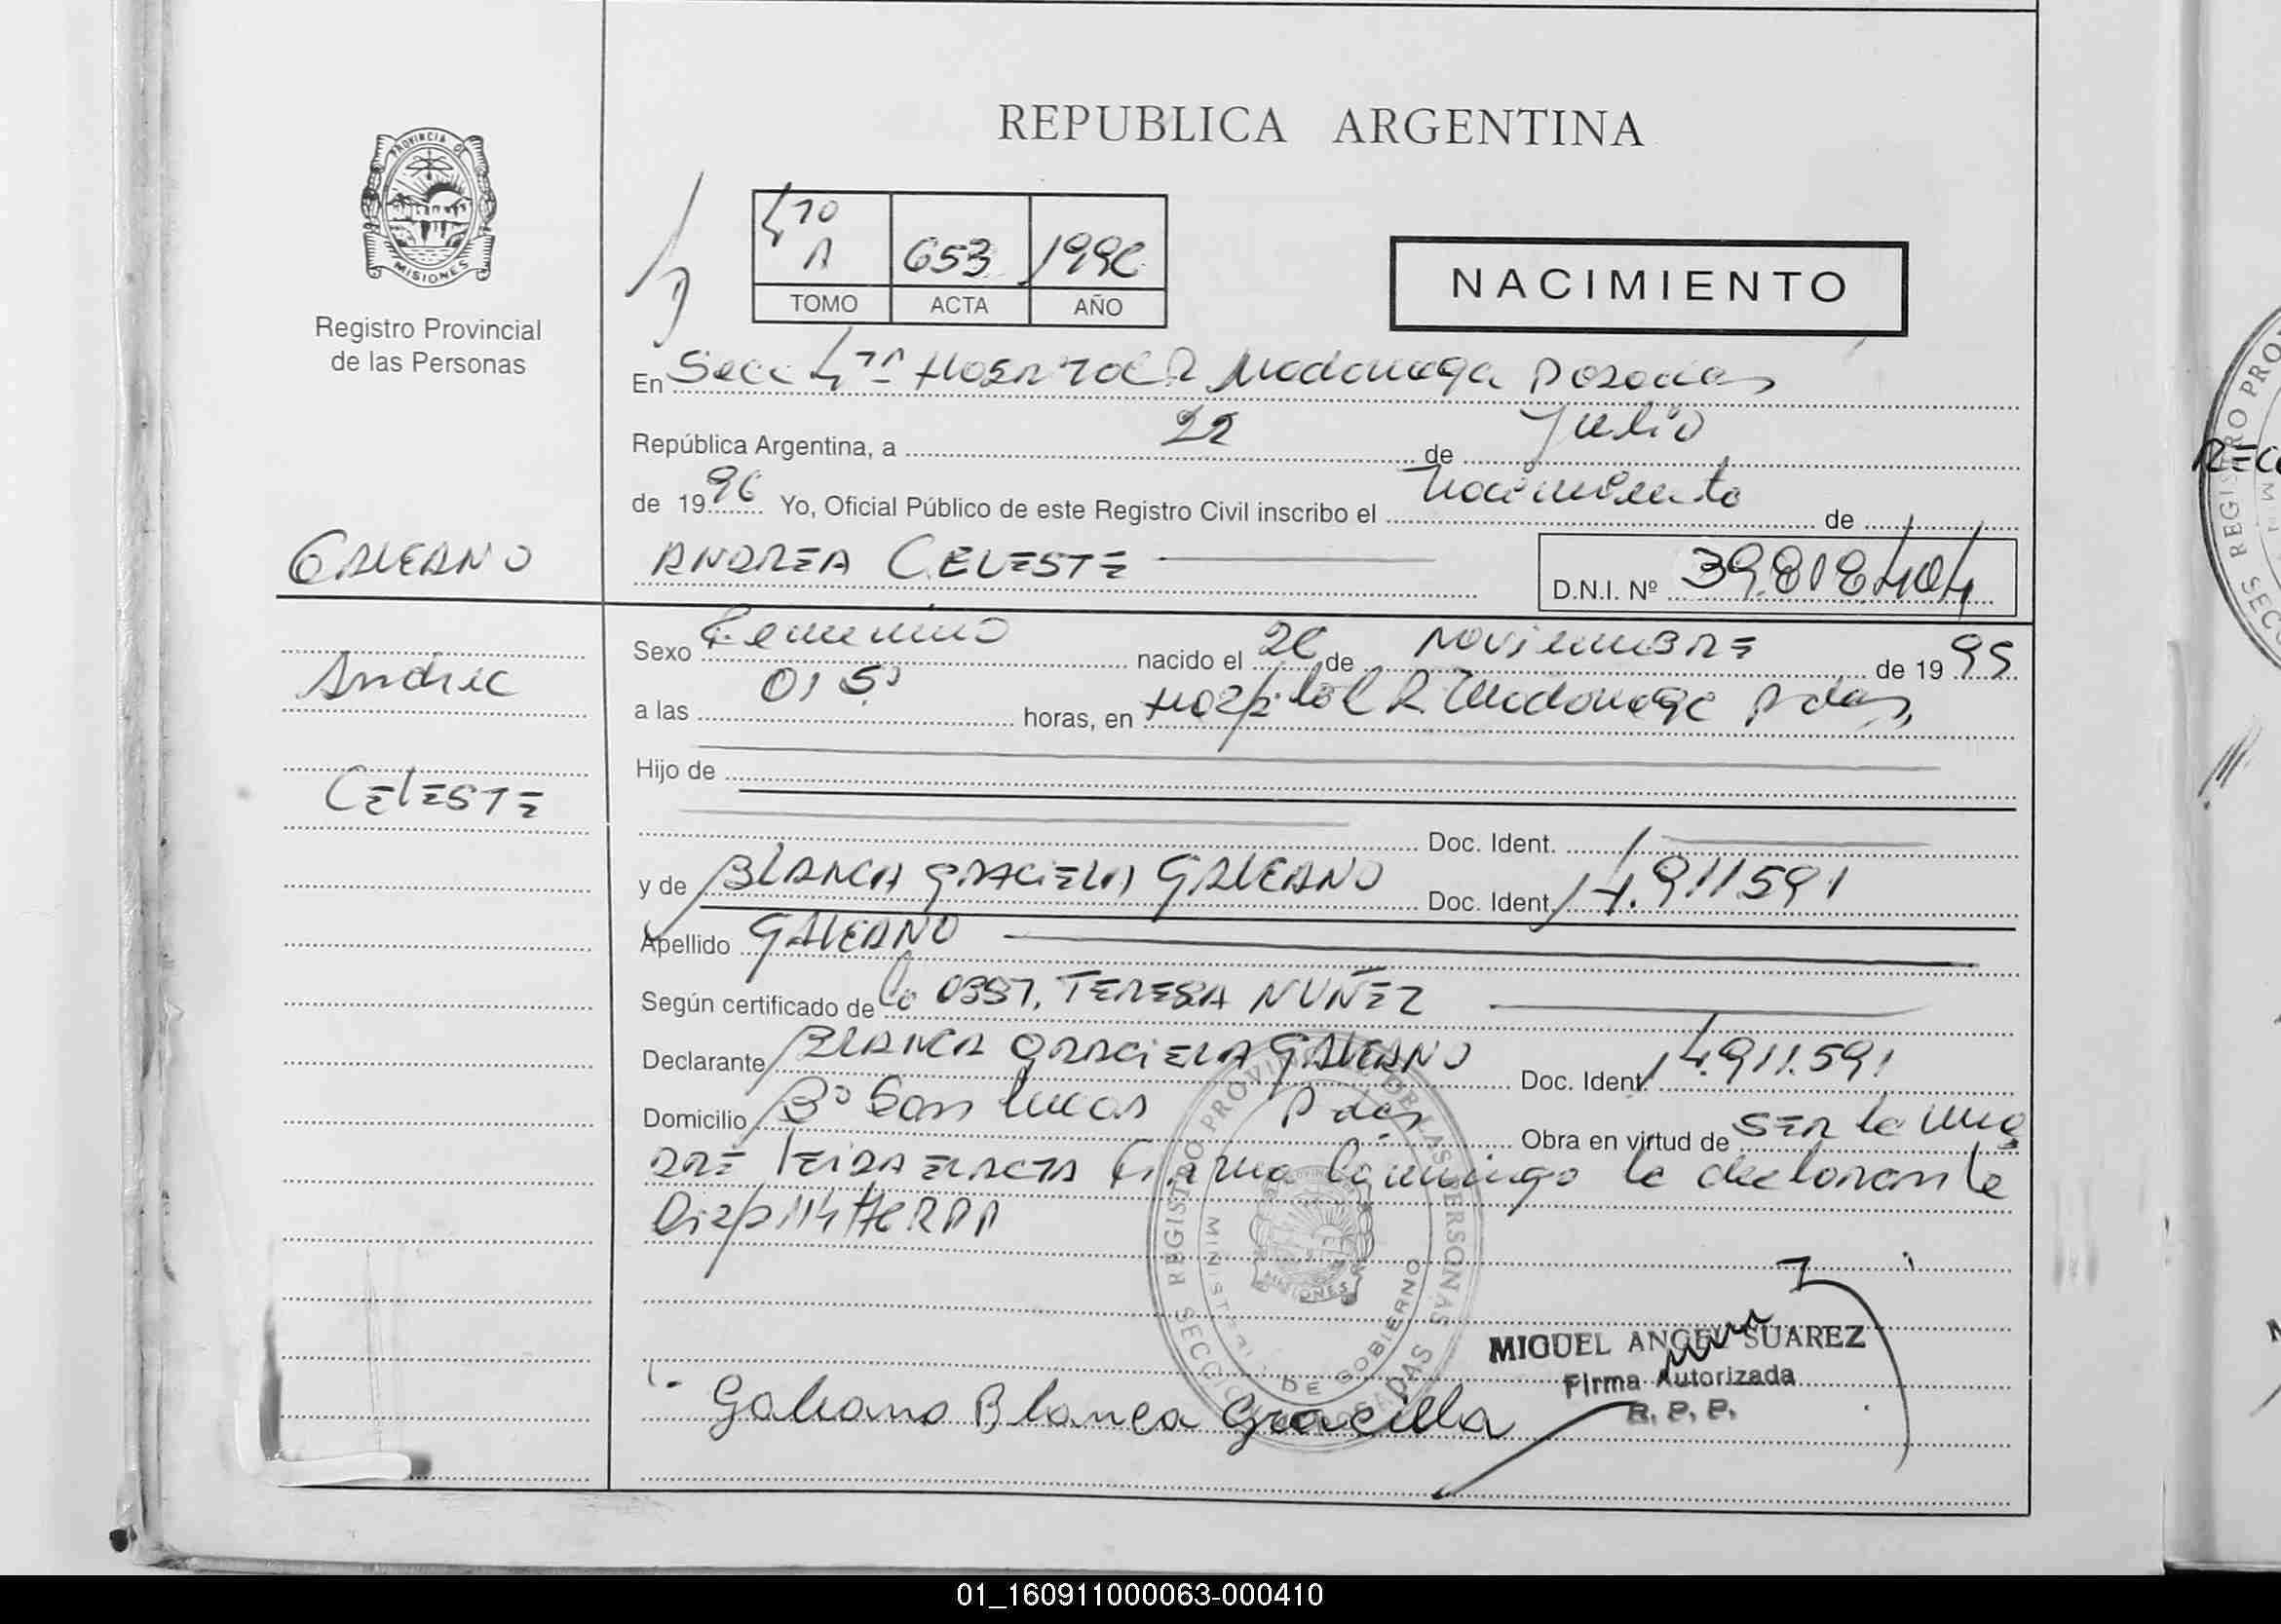 REPUBLICA ARGENTINA
PROVINCIA DE
MISIONES
Registro Provincial
de las Personas
4to A 653 1996
TOMO ACTA AÑO
NACIMIENTO
En Secc 4ta Hospital R Madariaga Posadas
República Argentina, a 22 de Julio
de 1996 Yo, Oficial Público de este Registro Civil inscribo el nacimiento de
GALEANO
ANDREA CELESTE
D.N.I. Nº 39.818.404
Sexo Femenino nacido el 26 de NOVIEMBRE de 1995
Andrea
a las 015 horas, en Hospital R. Madariaga Pdas,
Hijo de
CELESTE
Doc. Ident.
y de BLANCA GRACIELA GALEANO Doc. Ident. 14.911591
Apellido GALEANO
Según certificado de la OBST. TERESA NUÑEZ
Declarante BLANCA GRACIELA GALEANO Doc. Ident. 14.911.591
Domicilio Bº San Lucas Pdas Obra en virtud de SER la ma
DRE LEIDA EL ACTA Firma conmigo la declarante
Disp 114
REGISTRO PROVINCIAL DE LAS PERSONAS
MINISTERIO DE GOBIERNO
MISIONES
MIGUEL ANGEL SUAREZ
Firma Autorizada
R. P. P.
Galeano Blanca Graciela
01_160911000063-000410